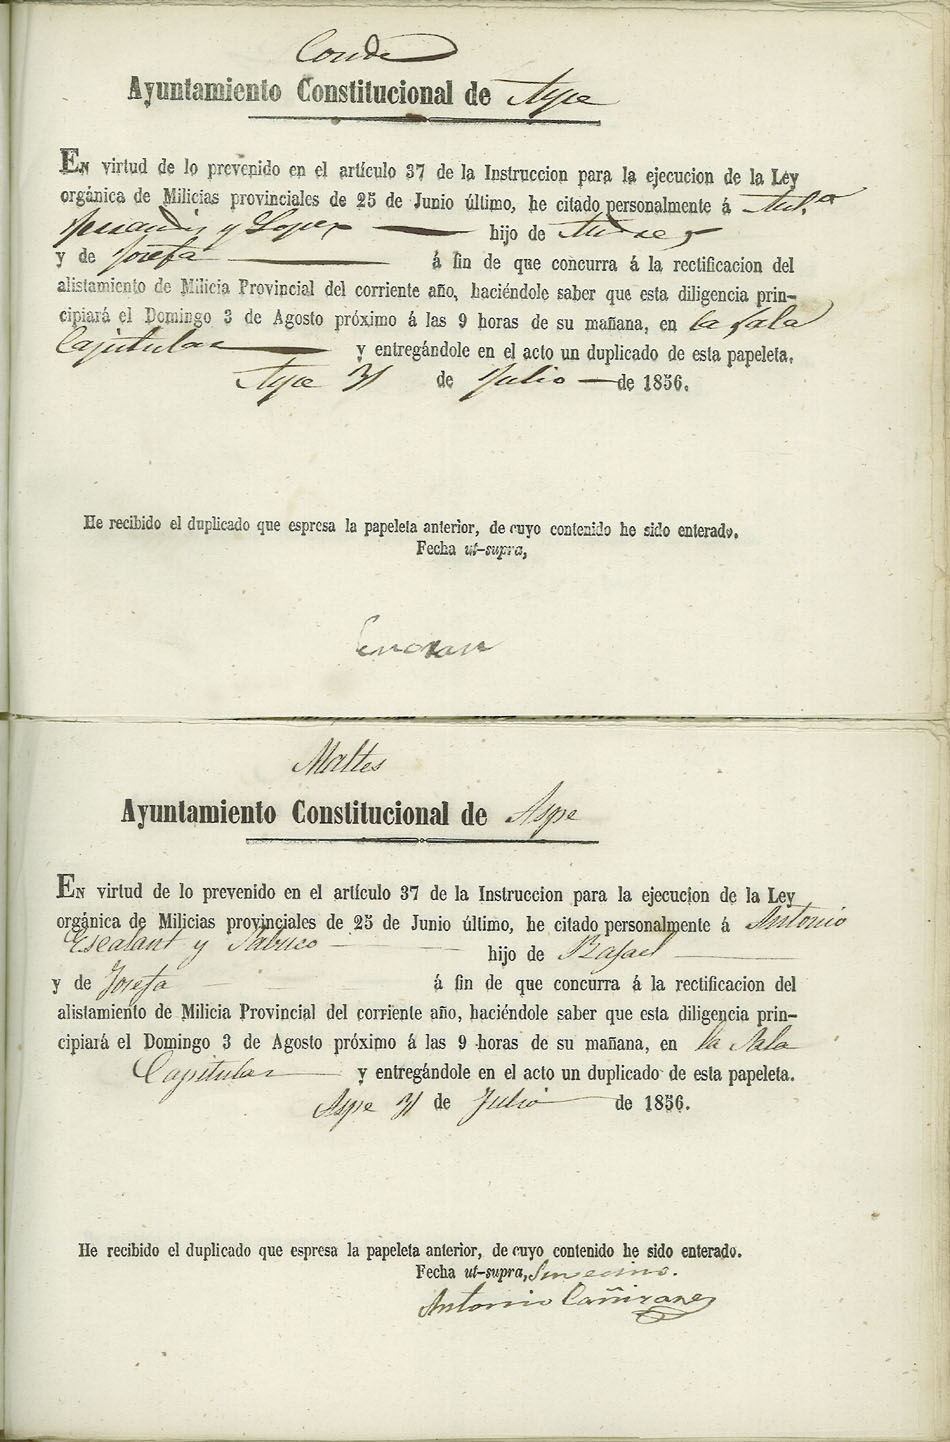 Conde
Ayuntamiento Constitucional de Aspe
EN virtud de lo prevenido en el artículo 37 de la Instruccion para la ejecucion de la Ley
orgánica de Milicias provinciales de 25 de Junio último, he citado personalmente á
y Lopez hijo de
y de Josefa á fin de que concurra á la rectificacion del
alistamiento de Milicia Provincial del corriente año, haciéndole saber que esta diligencia prin-
cipiará el Domingo 3 de Agosto próximo á las 9 horas de su mañana, en la sala
Capitular y entregándole en el acto un duplicado de esta papeleta.
Aspe 31 de Julio de 1856.
He recibido el duplicado que espresa la papeleta anterior, de cuyo contenido he sido enterado.
Fecha ut-supra,
Maltes
Ayuntamiento Constitucional de Aspe
EN virtud de lo prevenido en el artículo 37 de la Instruccion para la ejecucion de la Ley
orgánica de Milicias provinciales de 25 de Junio último, he citado personalmente á Antonio
Escalant y hijo de Rafael
y de Josefa á fin de que concurra á la rectificacion del
alistamiento de Milicia Provincial del corriente año, haciéndole saber que esta diligencia prin-
cipiará el Domingo 3 de Agosto próximo á las 9 horas de su mañana, en la Sala
Capitular y entregándole en el acto un duplicado de esta papeleta.
Aspe 31 de Julio de 1856.
He recibido el duplicado que espresa la papeleta anterior, de cuyo contenido he sido enterado.
Fecha ut-supra,
Antonio Cañizares